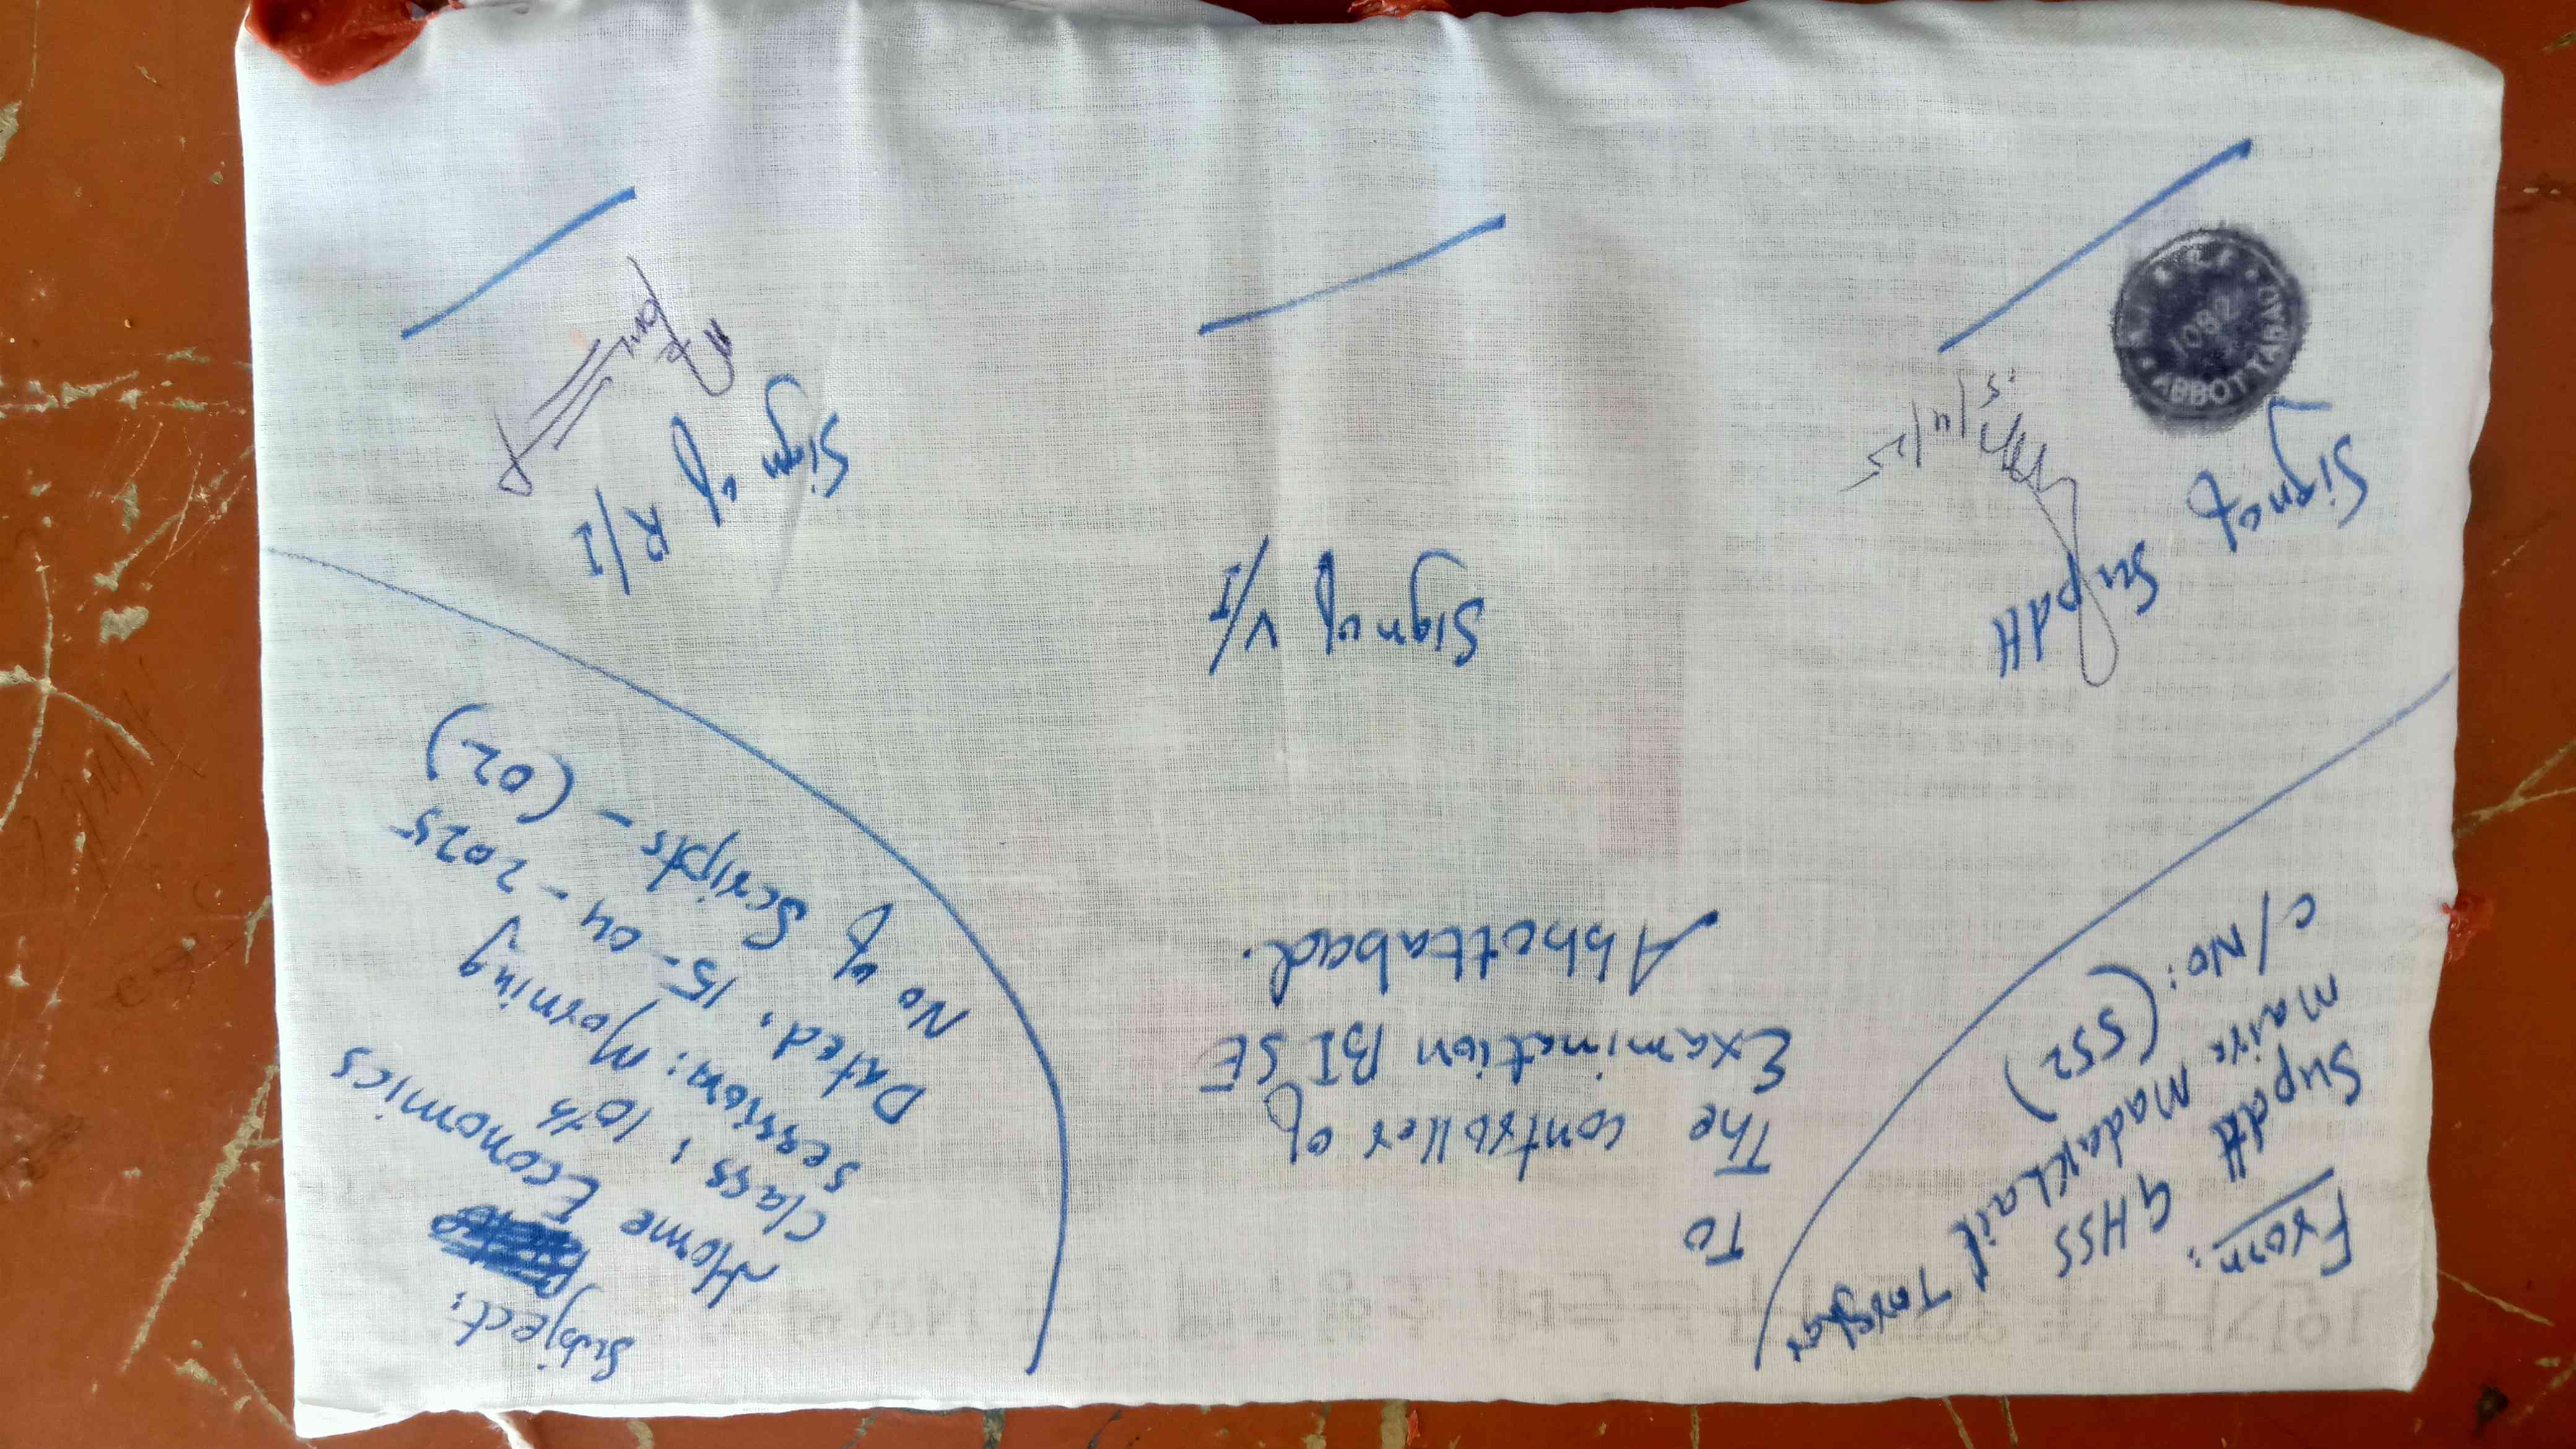 From:
Supdtt GHSS
Maira Madakhail Torghar
C/No: (552)
To
The controller of
Examination BISE
Abbottabad.
Subject:
Home Economics
Class: 10th
session: Morning
Dated: 15-04-2025
No of Scripts - (02)
Sign of
Supdtt
15/4/25
1082
ABBOTTABAD
Sign of V/I
Sign of
R/I